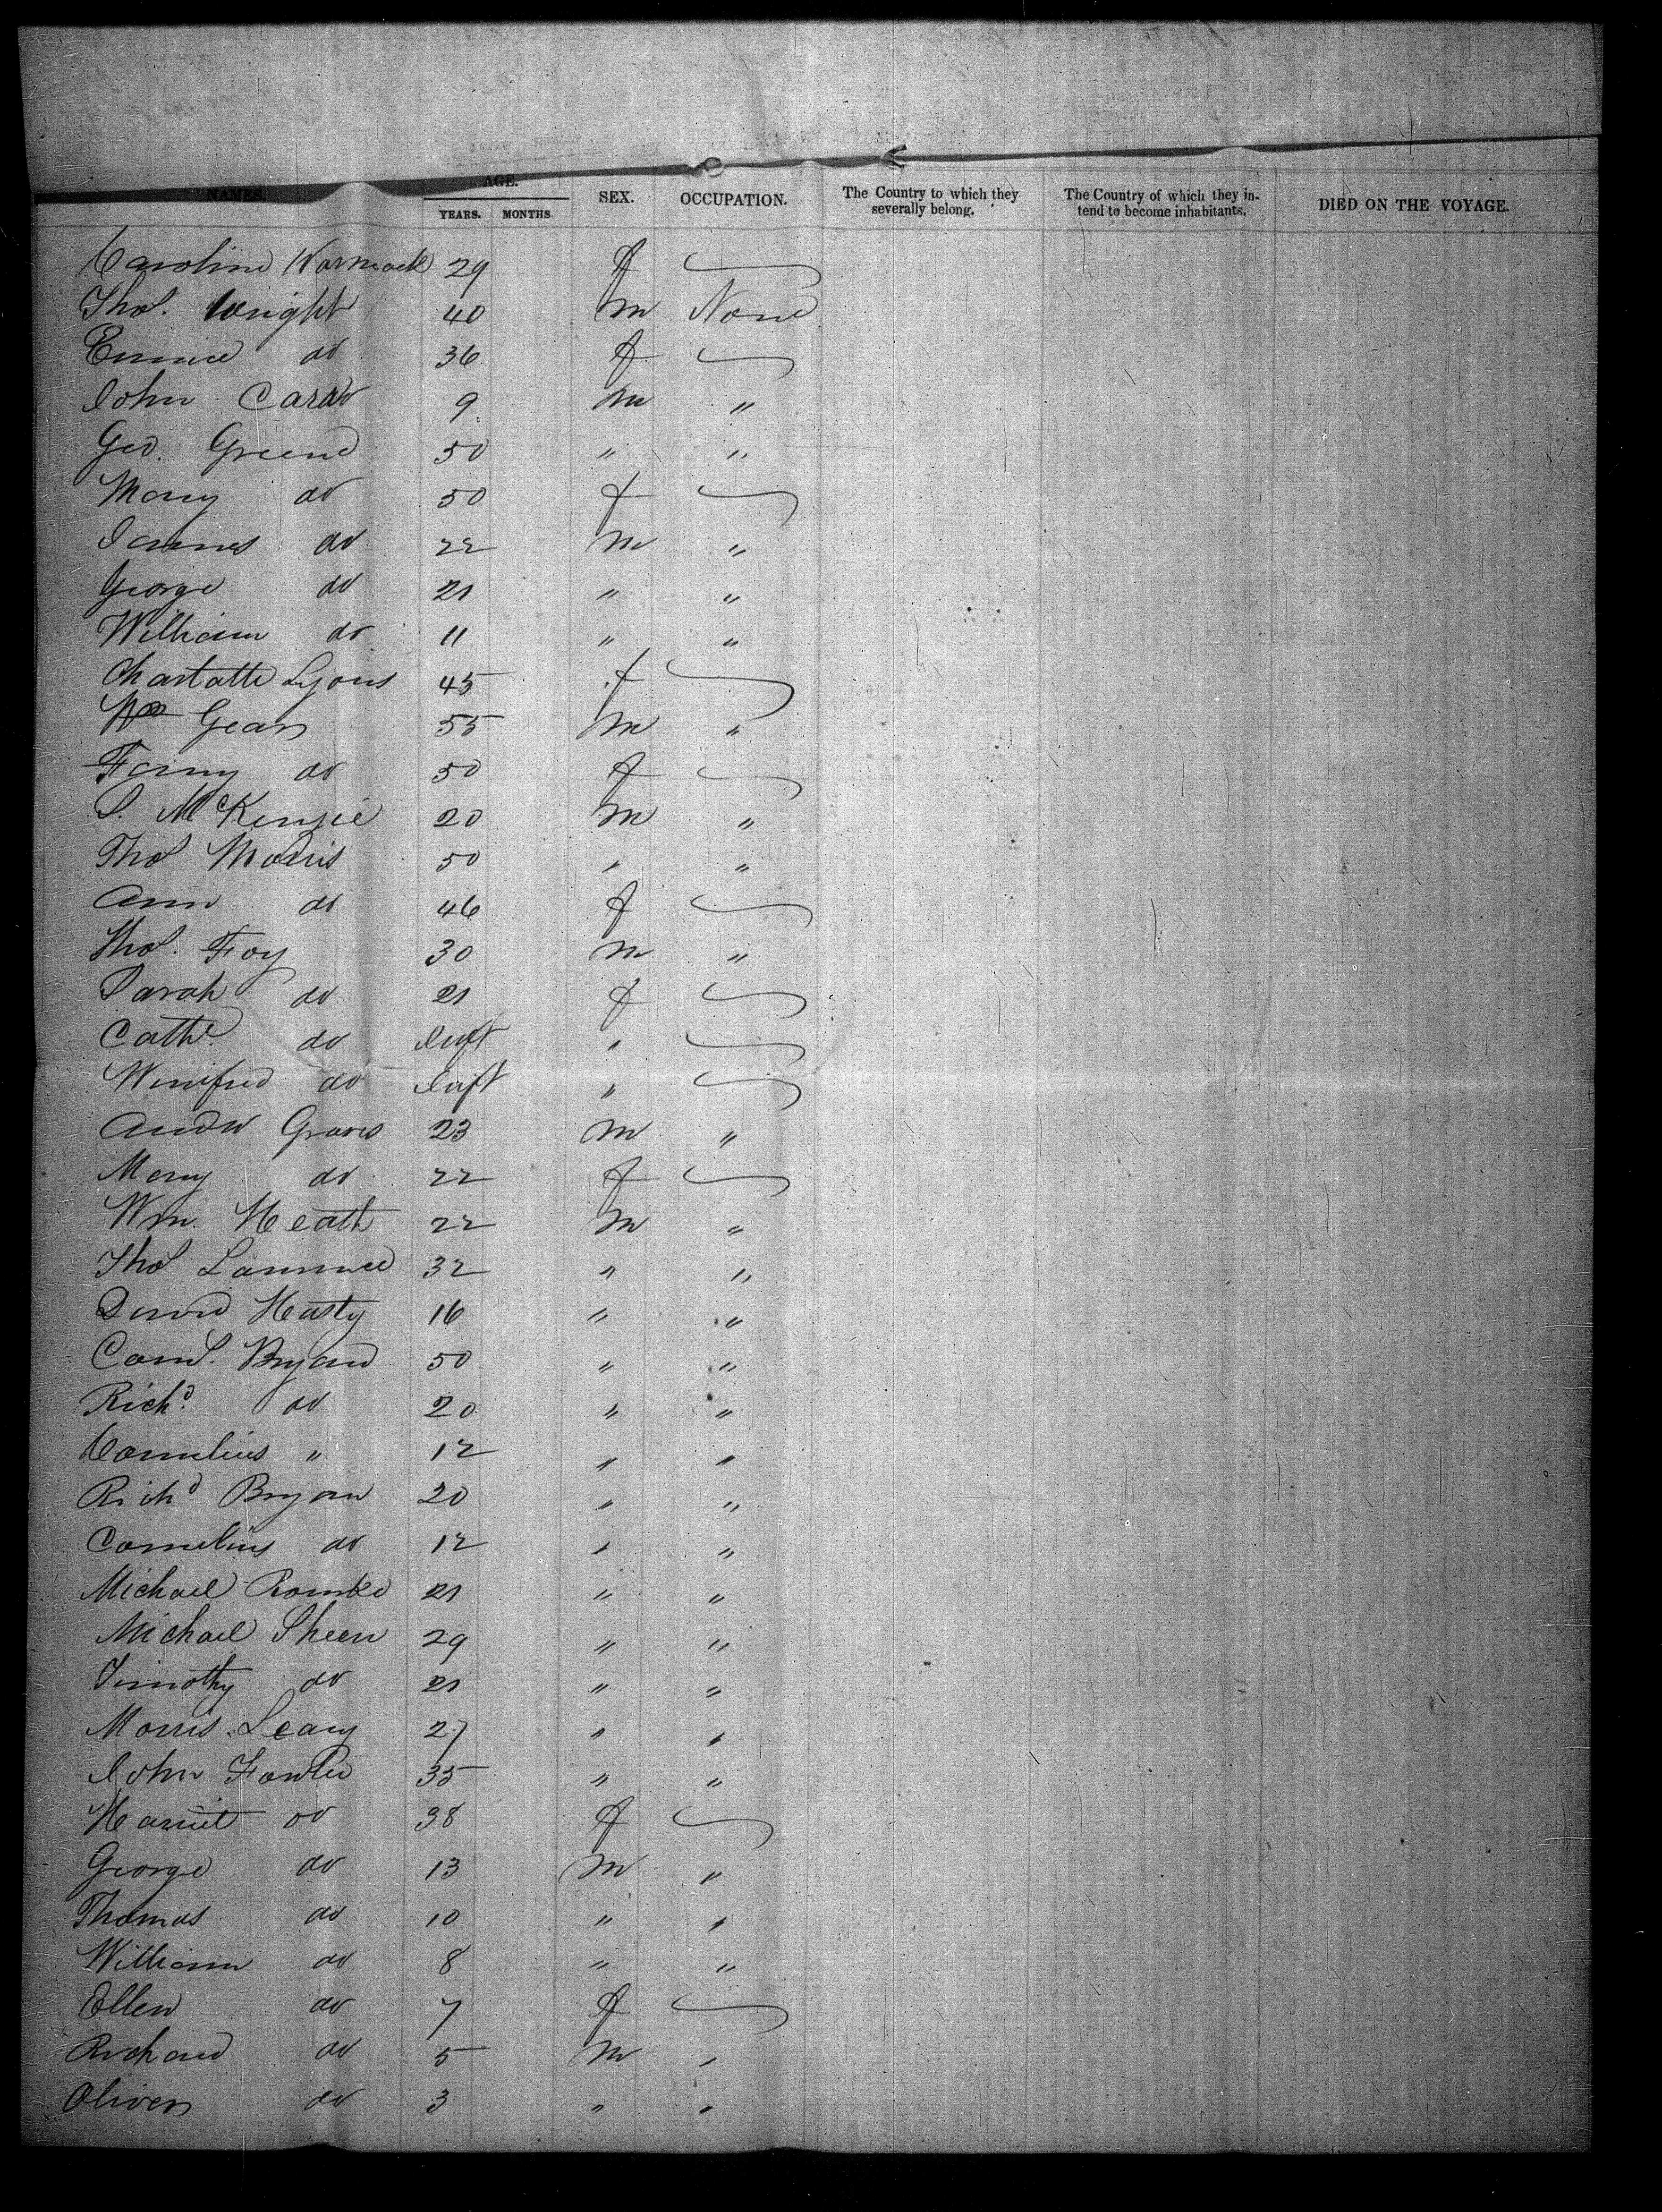 NAMES. AGE. SEX. OCCUPATION. The Country to which they severally belong. The Country of which they intend to become inhabitants. DIED ON THE VOYAGE.
YEARS. MONTHS.
Caroline Warmack 29 f
Thos. Wright 40 m None
Eunice do 36 f
John Card 9 m "
Geo. Greene 50 " "
Mary do 50 f
James do 22 m "
George do 21 " "
William do 11 " "
Charlotte Lyons 45 f
Gears 55 m "
Fanny do 50 f
S. McKenzie 20 m "
Thos Morris 50 " "
Ann do 46 f
Thos. Foy 30 m "
Sarah do 21 f
Cathe do Inft "
Winifred do Inft "
Andw Graves 23 m "
Mary do 22 f
Wm. Heath 22 m "
Thos 32 " "
David Hasty 16 " "
Corns. Bryan 50 " "
Richd do 20 " "
Cornelius " 12 " "
Richd Bryan 20 " "
Cornelius do 12 " "
Michael Rourke 21 " "
Michael Sheen 29 " "
Timothy do 21 " "
Morris Leary 27 " "
John Fowler 35 " "
Harriet do 38 f
George do 13 m "
Thomas do 10 " "
William do 8 " "
Ellen do 7 f
Richard do 5 m "
Oliver do 3 " "